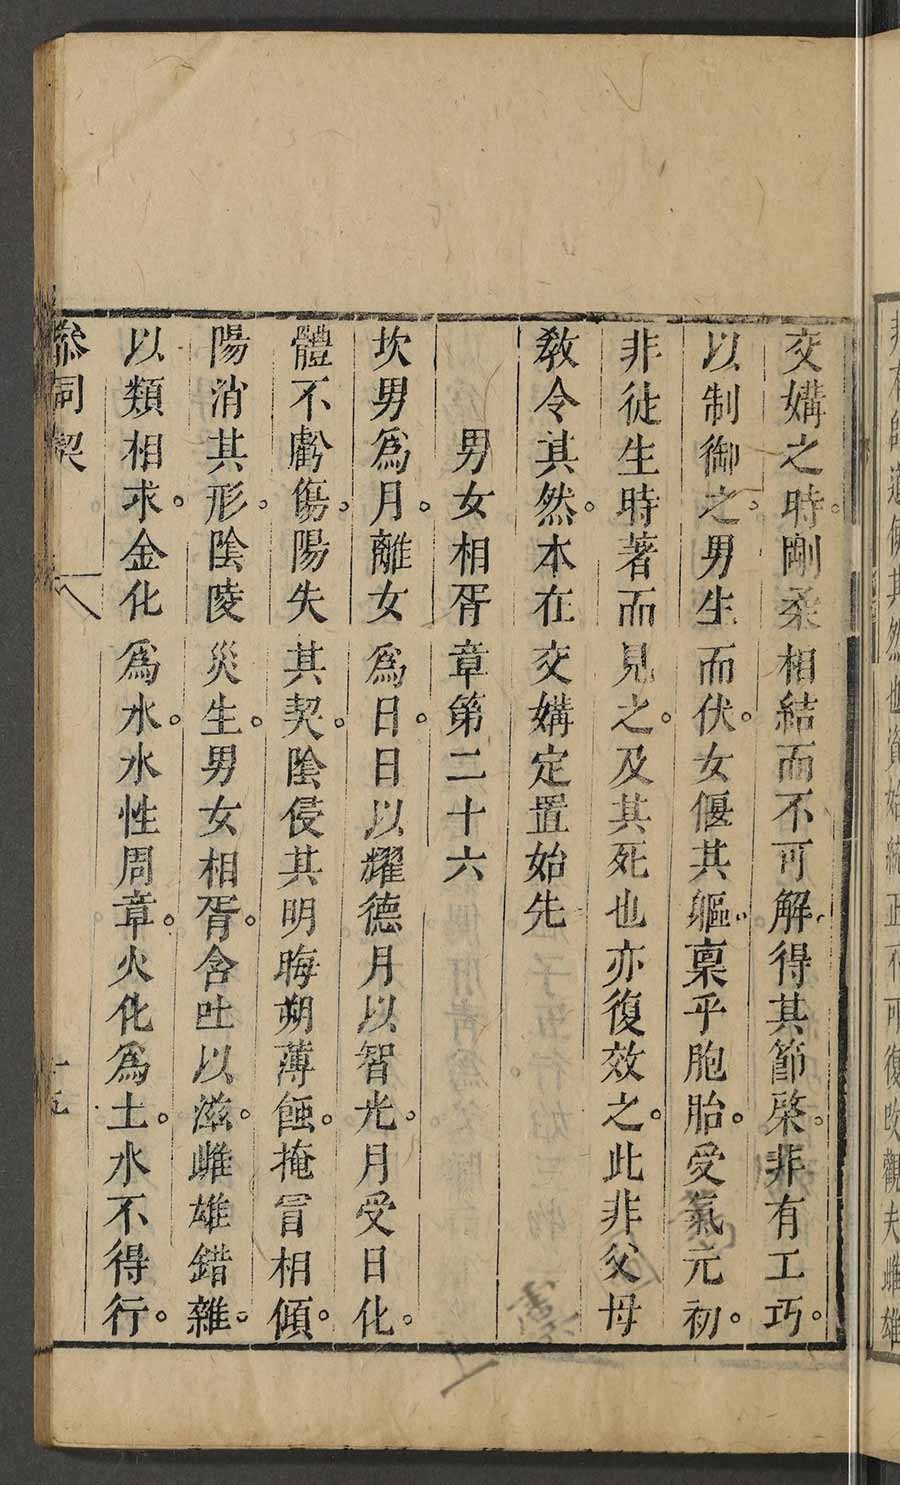 交媾之時。剛柔相結而不可解。得其節棨。非有工巧。
以制御之。男生而伏。女偃其軀。稟乎胞胎。受氣元初。
非徒生時著而見之。及其死也亦復效之。此非父母
教令其然。本在交媾定置始先
男女相胥章第二十六
坎男爲月。離女爲日。日以耀德月以智光。月受日化。
體不虧傷。陽失其契。陰侵其明晦朔薄蝕。掩冒相傾。
陽消其形。陰陵災生。男女相胥。含吐以滋。雌雄錯雜。
以類相求。金化爲水。水性周章。火化爲土。水不得行。
參同契 十五